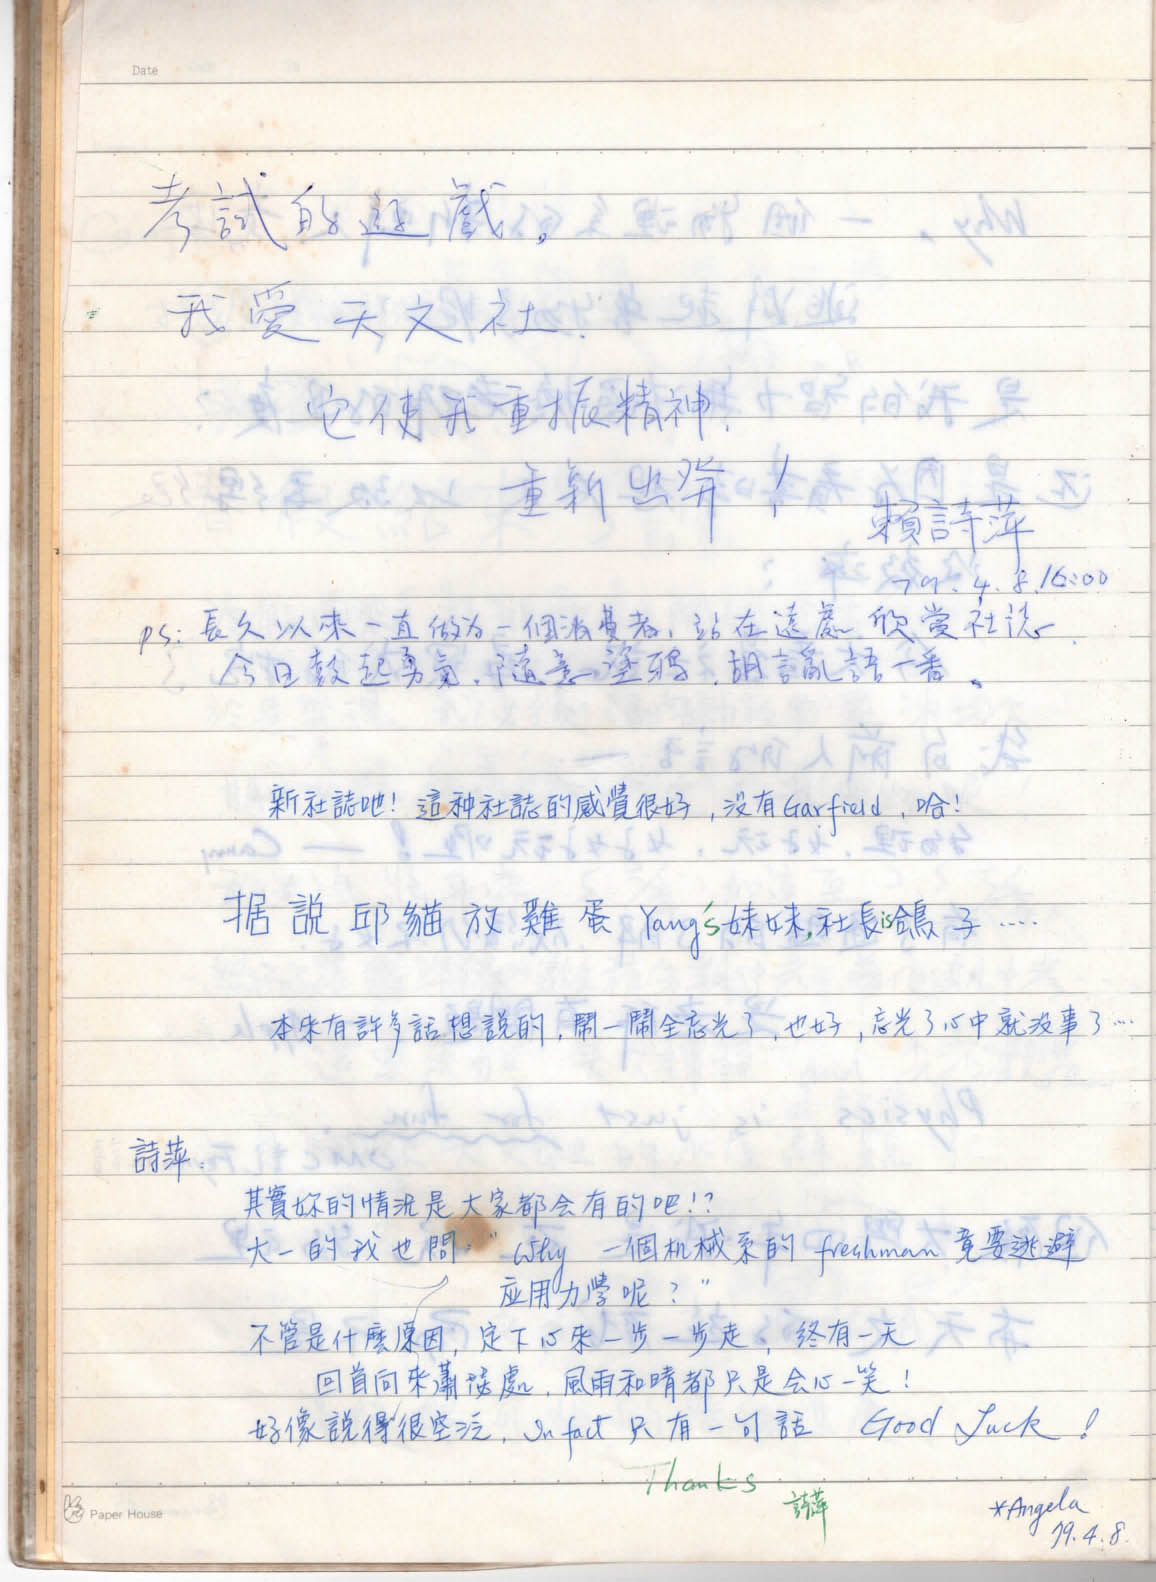 Date
考試的遊戲。
我愛天文社.
它使我重振精神.
重新出發！
賴詩萍
79.4.8.16:00
PS: 長久以來一直做為一個消費者，站在遠處欣賞社誌，
今日鼓起勇氣，隨意塗鴉，胡言亂語一番。
新社誌吔！這种社誌的感覺很好，沒有Garfield，哈！
据説邱貓放雞蛋 Yang's妹妹,社長is鴿子....
本來有許多話想說的，鬧一鬧全忘光了，也好，忘光了心中就沒事了…
詩萍：
其實妳的情況是大家都会有的吧!?
大一的我也問："Why 一個机械系的 freshman 竟要逃避
应用力學呢？"
不管是什麼原因，定下心來一步一步走，終有一天
回首向來蕭瑟處，風雨和晴都只是会心一笑！
好像説得很空泛，In fact 只有一句話 Good Luck！
Thanks
詩萍
*Angela
79.4.8.
Paper House